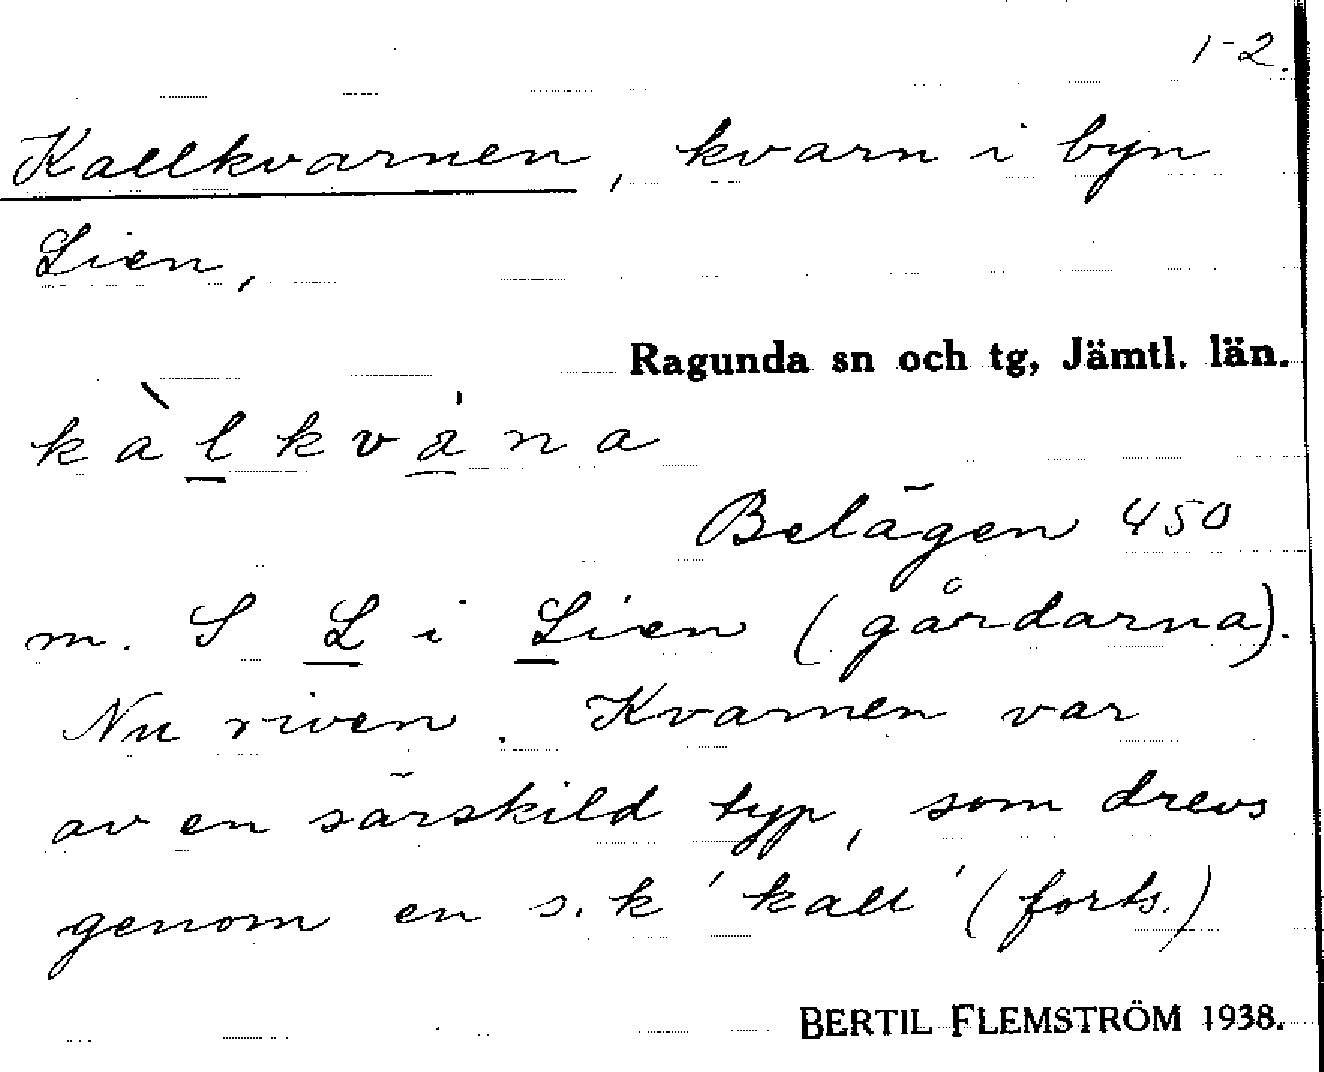 1-2.
Kallkvarnen, kvarn i byn
Lien,
Ragunda sn och tg, Jämtl. län.
kàlkvána
Belägen 450
m. S L i Lien (gårdarna).
Nu riven. Kvarnen var
av en särskild typ, som drevs
genom en s.k 'kall' (forts.)
BERTIL FLEMSTRÖM 1938.